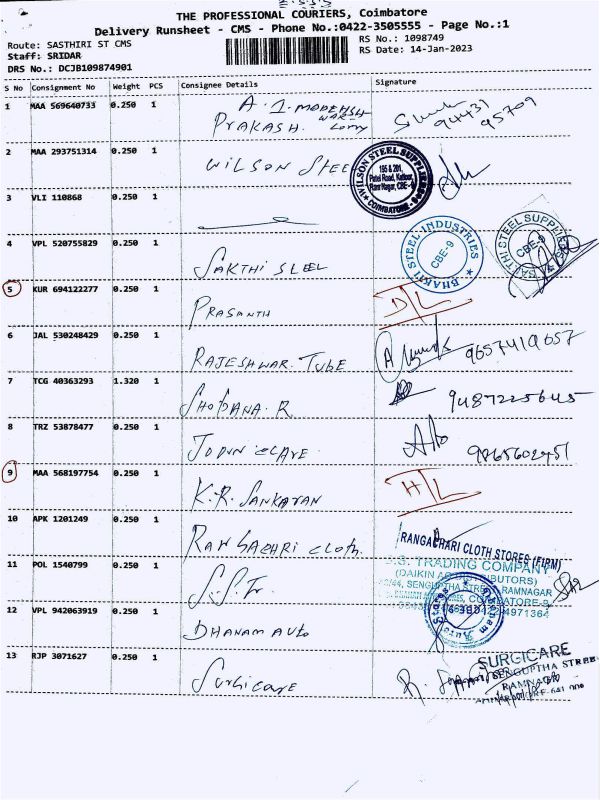 THE PROFESSIONAL COURIERS, Coimbatore
Delivery Runsheet - CMS - Phone No.:0422-3505555 - Page No.:1
Route: SASTHIRI ST CMS
RS No.: 1098749
Staff: SRIDAR
RS Date: 14-Jan-2023
DRS No.: DCJB109874901
S No Consignment No Weight PCS Consignee Details Signature
1 MAA 569640733 0.250 1 PRAKASH.
2 MAA 293751314 0.250 1 WILSON STEEL
WILSON STEEL SUPPLIERS
195 & 201,
Patel Road, Kattoor,
Ram Nagar, CBE-9
COIMBATORE
3 VLI 110868 0.250 1
4 VPL 520755829 0.250 1 SAKTHI STEEL
BHAKTI STEEL INDUSTRIES
CBE-9
SAKTHI STEEL SUPPLIERS
CBE-9
5 KUR 694122277 0.250 1 PRASANTH D/L
6 JAL 530248429 0.250 1 RAJESHWAR. TUBE 9657419657
7 TCG 40363293 1.320 1 SHOBANA. R 9487225645
8 TRZ 53878477 0.250 1
9 MAA 568197754 0.250 1 K.R. SANKARAN H/L
10 APK 1201249 0.250 1 RANGACHRI CLOTH.
RANGACHARI CLOTH STORES (FIRM)
11 POL 1540799 0.250 1
S.S. TRADING COMPANY
(DAIKIN AC DISTRIBUTORS)
SENGUPTHA STREET, RAMNAGAR
COIMBATORE-9
12 VPL 942063919 0.250 1 DHANAM AUTO
Dhanam Auto Stores
13 RJP 3071627 0.250 1 Surgicare
SURGICARE
SENGUPTHA STREET
RAMNAGAR